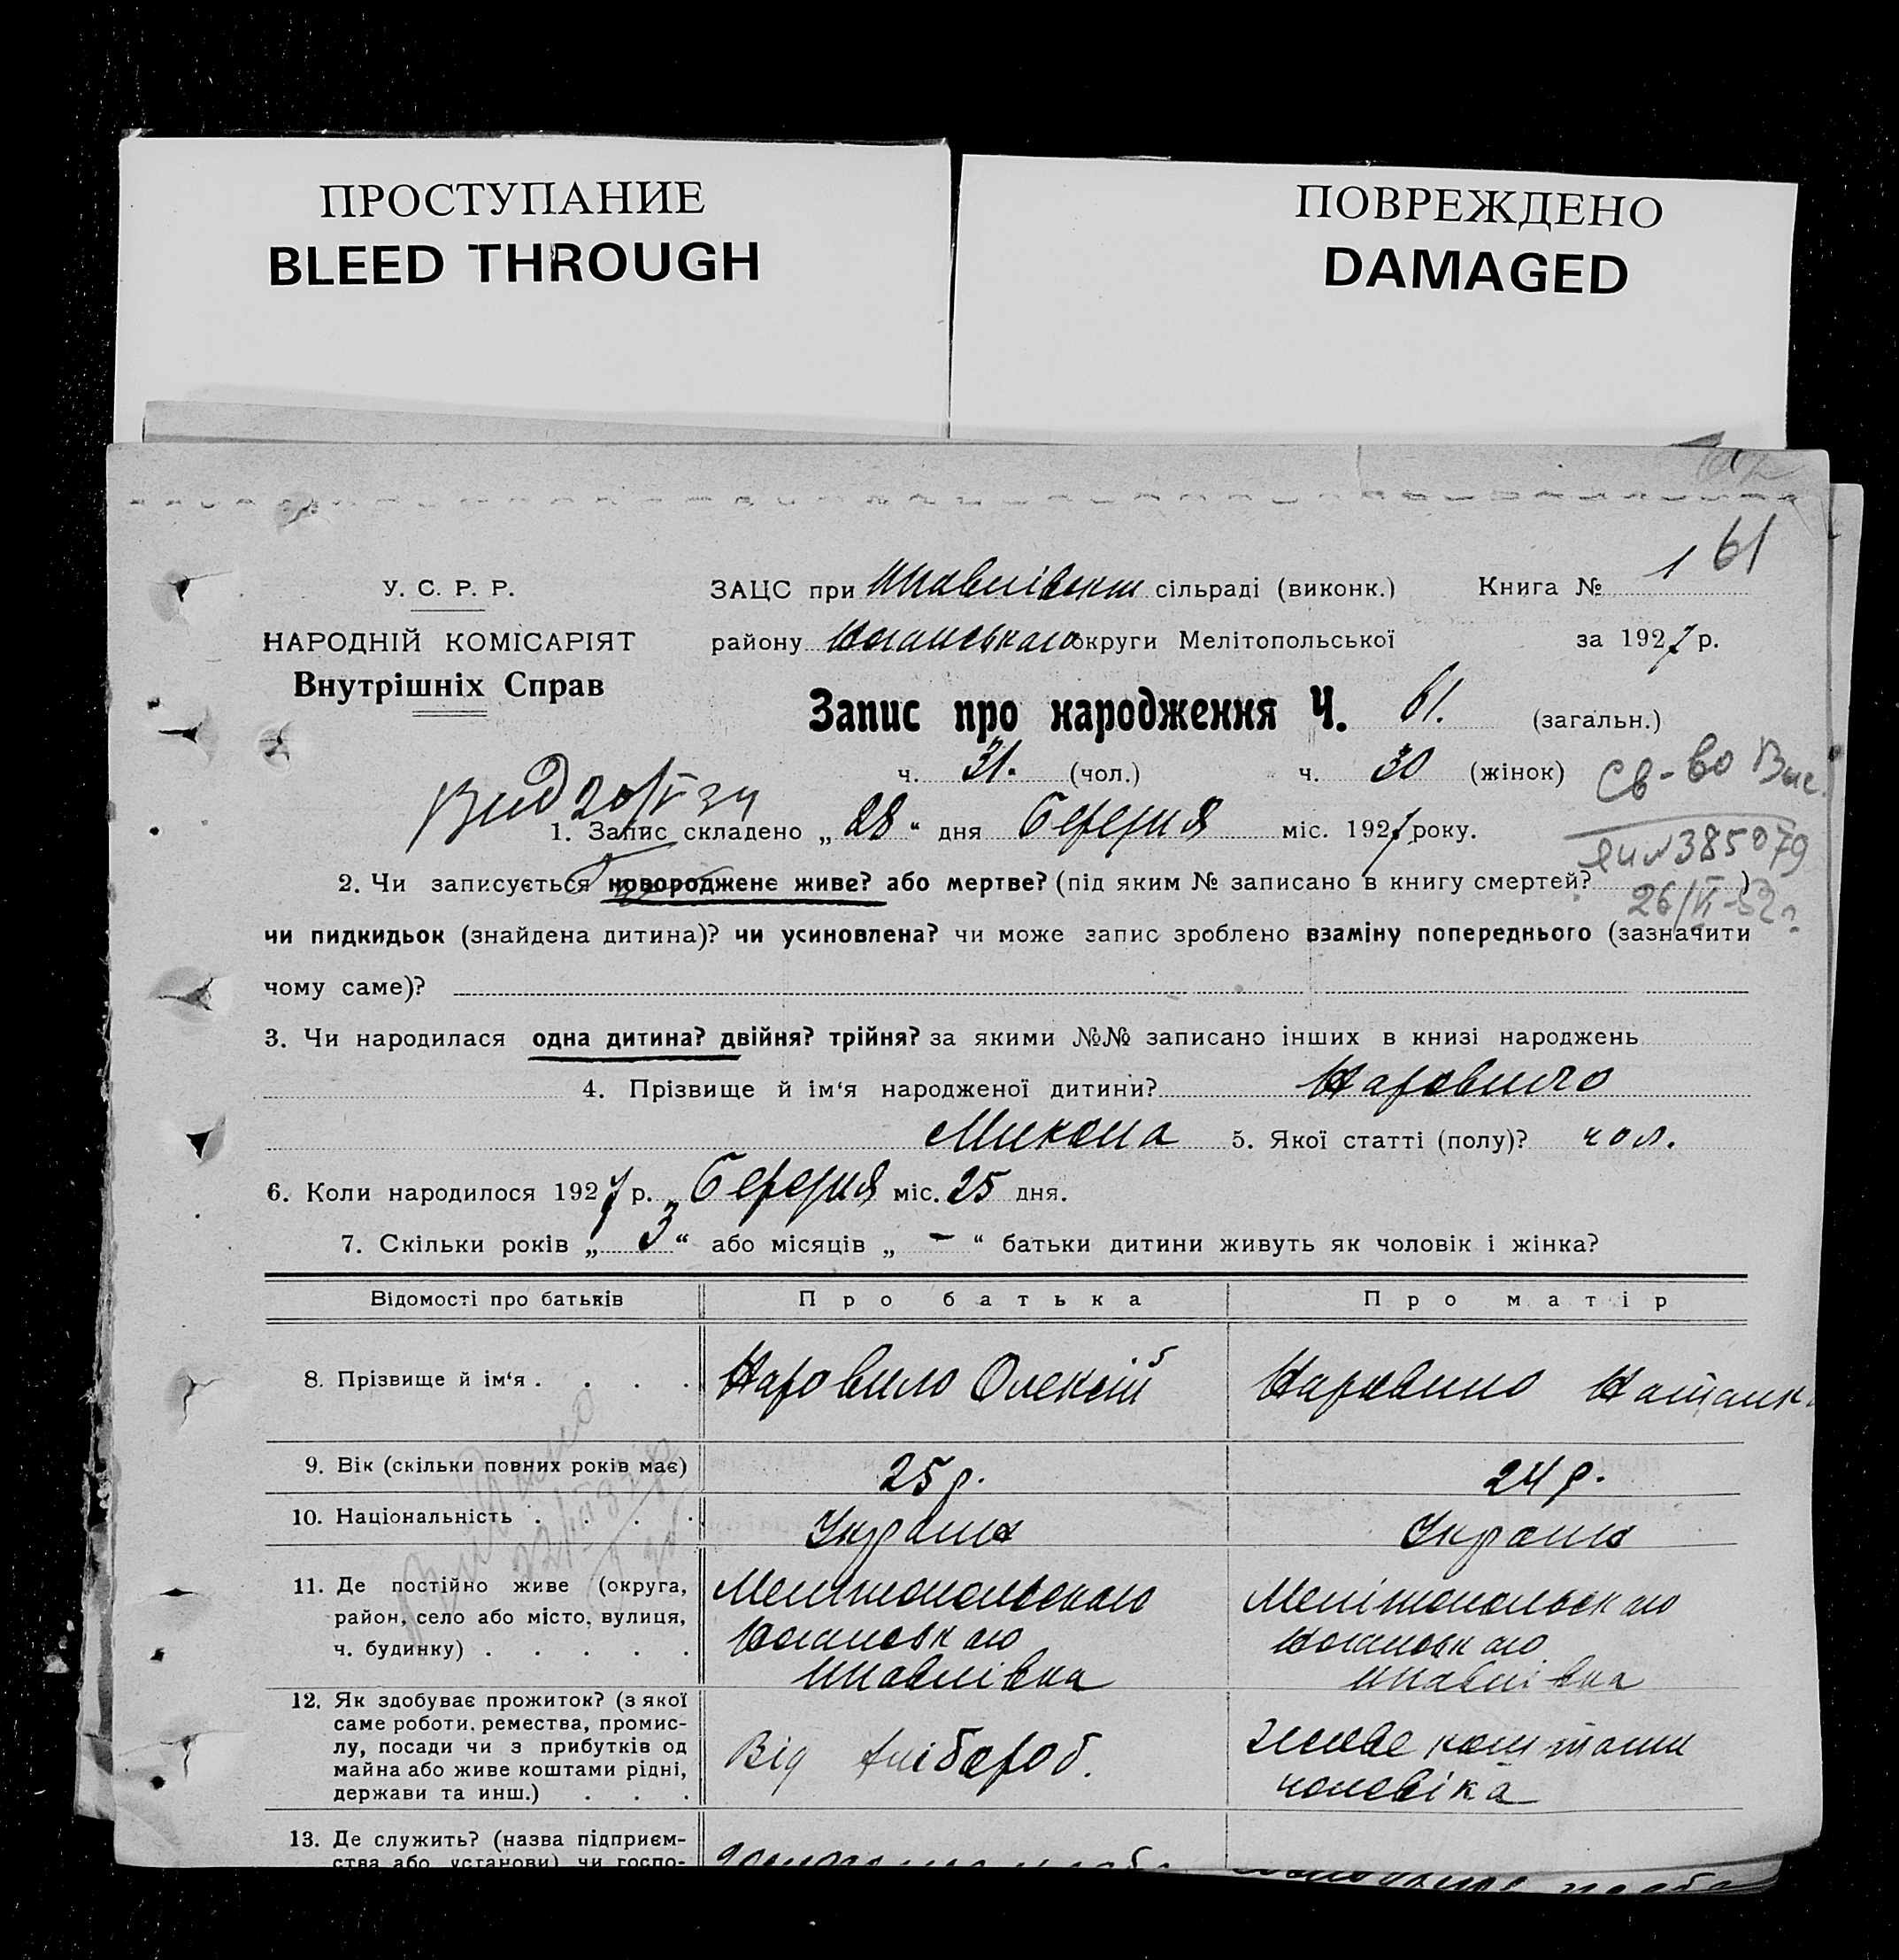 ПРОСТУПАНИЕ
BLEED THROUGH
ПОВРЕЖДЕНО
DAMAGED
61
У. С. Р. Р.
НАРОДНІЙ КОМІСАРІЯТ
Внутрішніх Справ
ЗАЦС при сільраді (виконк.) Книга № 1
району округи Мелітопольської за 1927 р.
Запис про народження Ч. 61. (загальн.)
ч. 31. (чол.) ч. 30 (жінок)
Св-во
385079
1. Запис складено „ 28 “ дня Березня міс. 1927 року.
2. Чи записується новороджене живе? або мертве? (під яким № записано в книгу смертей? )
чи пидкидьок (знайдена дитина)? чи усиновлена? чи може запис зроблено взаміну попереднього (зазначити
чому саме)?
3. Чи народилася одна дитина? двійня? трійня? за якими №№ записано інших в книзі народжень
4. Прізвище й ім‘я народженої дитини? Наровило
Микола 5. Якої статті (полу)? чол.
6. Коли народилося 1927 р. Березня міс. 25 дня.
7. Скільки років „ 3 “ або місяців „ – “ батьки дитини живуть як чоловік і жінка?
Відомості про батьків Про батька Про матір
8. Прізвище й ім‘я . . . . Наровило Олексій Наровило
9. Вік (скільки повних років має) 25 р. 24 р.
10. Національність . . . .
11. Де постійно живе (округа,
район, село або місто, вулиця,
ч. будинку) . . . . .
Мелітопольского
Мелітопольского
12. Як здобуває прожиток? (з якої
саме роботи, ремества, промис-
лу, посади чи з прибутків од
майна або живе коштами рідні,
держави та инш.) . . .
Від хлібороб.
живе коштами
чоловіка
13. Де служить? (назва підприєм-
ства або установи) чи госпо-